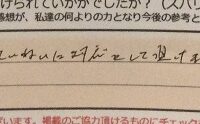 けられていかがでしたか？（スバリ
感想が、私達の何よりの力となり今後の参考と
ていねいに対応して頂けま
ざいます。掲載のご協力頂けるものにチェック